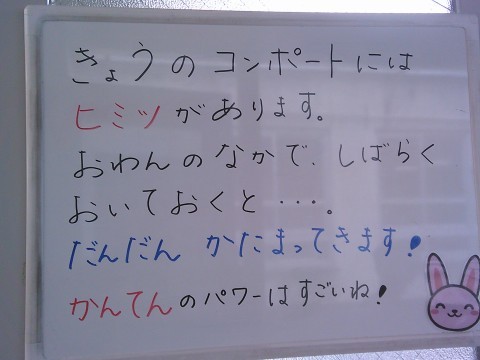 きょうのコンポートには
ヒミツがあります。
おわんのなかで、しばらく
おいておくと・・・。
だんだん かたまってきます!
かんてんのパワーはすごいね!